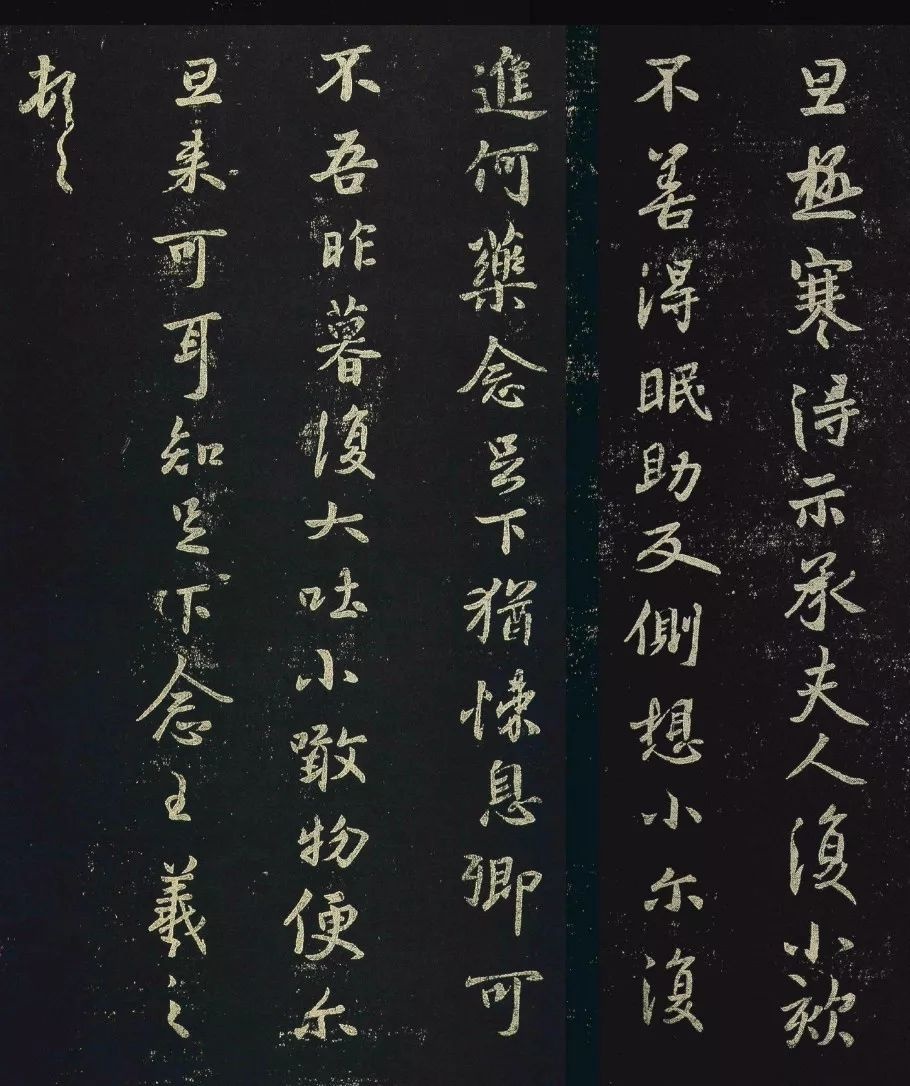 旦極寒得示承夫人復小欬
不善得眠助反側想小尒復
進何藥念足下猶悚息卿可
不吾昨暮復大吐小噉物便尒
旦来可耳知足下念王羲之
頓首